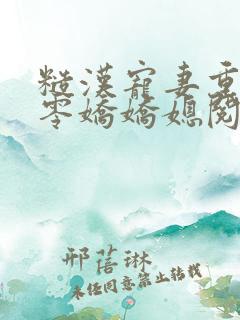 糙漢寵妻重
零嬌嬌媳閱
邢蓓琳
未经同意禁止转载